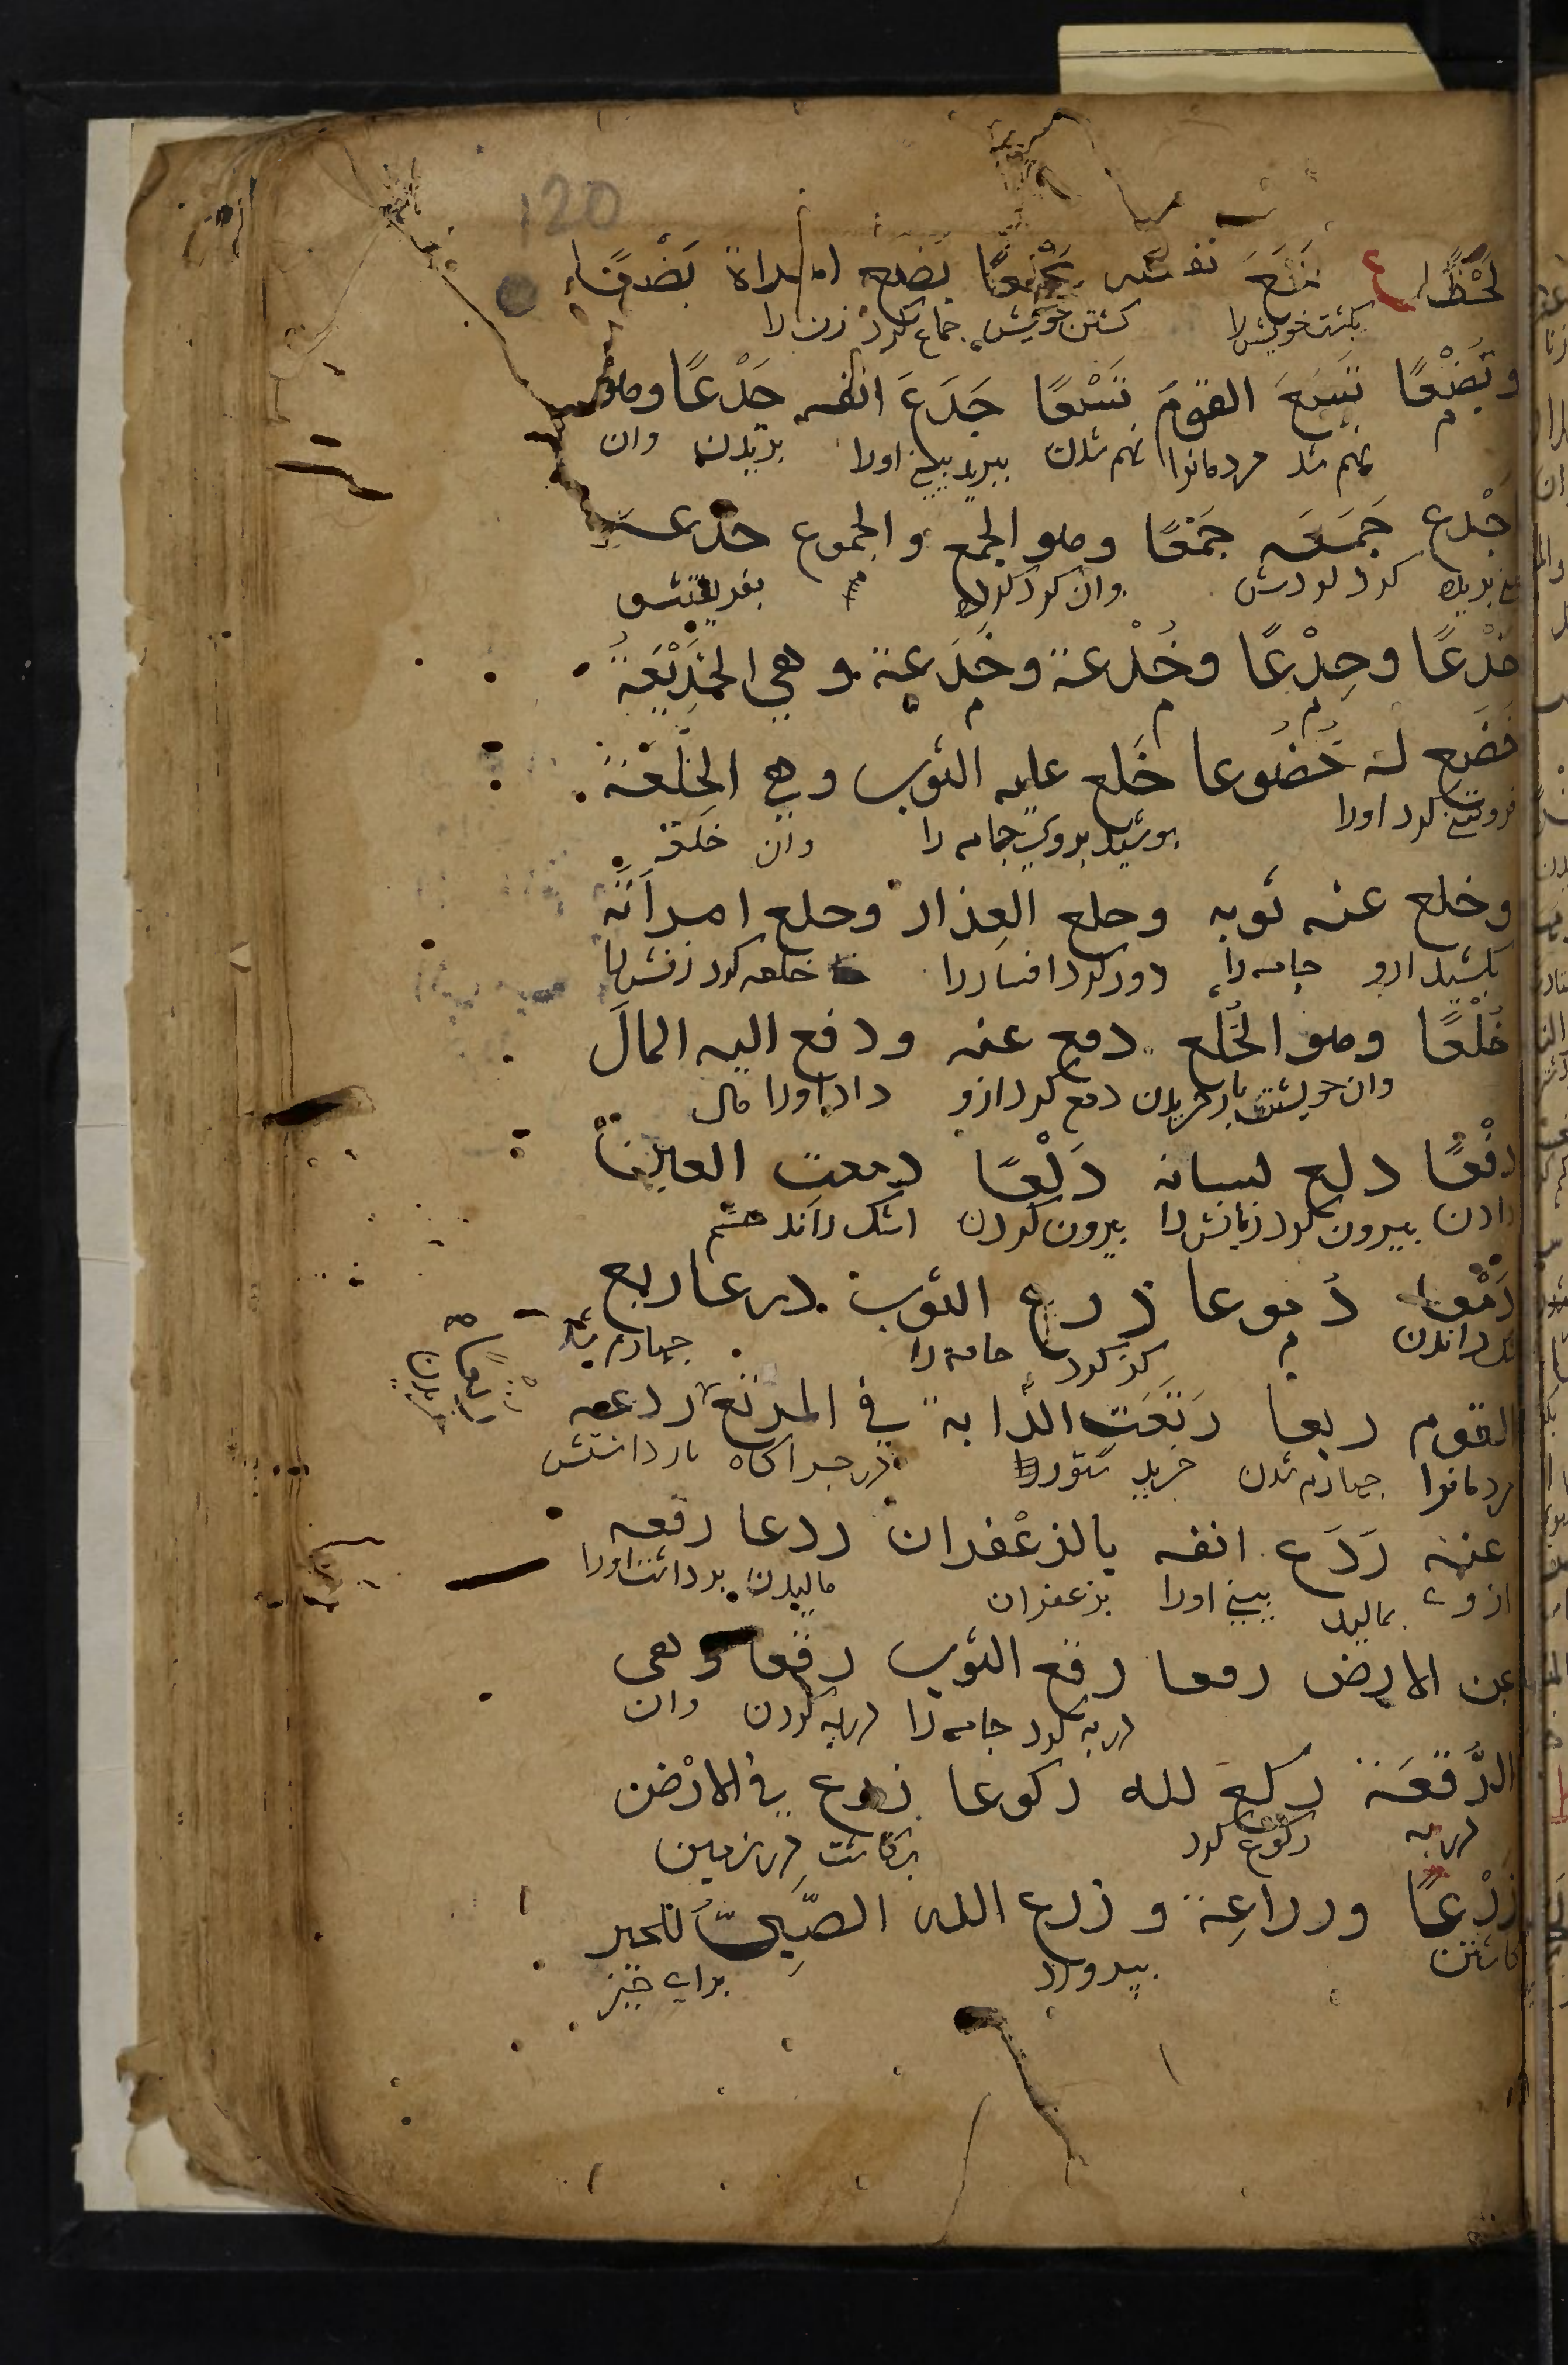 120
لَحْظًا ع بَخَعَ نفسَه بَخْعًا بَضَع امراة بَضْعًا
بكشت خويش را كشتن خويش جماع كرد زن را
وبُضْعًا تَسَعَ القومَ تَسْعًا جَدَعَ انفه جَدْعًا وهو
نهم شد مردمانرا نهم شدن ببريد بينى اورا بريدن وان
اجْدع جَمَعَه جَمْعًا وهو الجمع والجموع خدعه
بينى بريده كرد كردش وان كرد كرده م بفريفتش
خَدْعًا وخِدْعًا وخُدْعة وخَدِعة وهي الخَدِيْعَةُ
خَضَع له خُضُوعا خَلع عليه الثوب وهي الخِلْعَة
فروتنى كرد اورا پوشيد بروى جامه را وان خلعة
وخلع عنه ثوبه وخلع العِذار وخلع امرأتَه
بكشيد ازو جامه را دور كرد افسار را خلعه كرد زنش را
خُلْعًا وهو الخُلع دفع عنه ودفع اليه المالَ
وان خويشتن باز خريدن دفع كرد ازو داد اورا مال
دَفْعًا دلع لسانه دَلْعًا دمعت العين
دادن بيرون كرد زبانش را بيرون كردن اشك راند چشم
دَمْعًا دُموعا ذرع الثوب ذرعا ربع
اشك راندن م كز كرد جامه را چهارم شد
القوم ربعا رَتَعَتِ الدَّابة في المرتع ردعه
مردمانرا چهارم شدن چريد ستور در چراكاه باز داشتش
عنه رَدَع انفه بالزعْفران ردعا رفعه
ازوى بماليد بينى اورا بزعفران ماليدن برداشت اورا
عن الارض رفعا رقع الثوب رقعا وهى
دربه كرد جامه را دربه كردن وان
الرُّقعَة ركع لله ركوعا زرع في الارْض
دربه ركوع كرد بكاشت در زمين
زَرْعًا وزراعِة وزرع الله الصَّبِىَّ للخير
كاشتن بپرورد براى خير